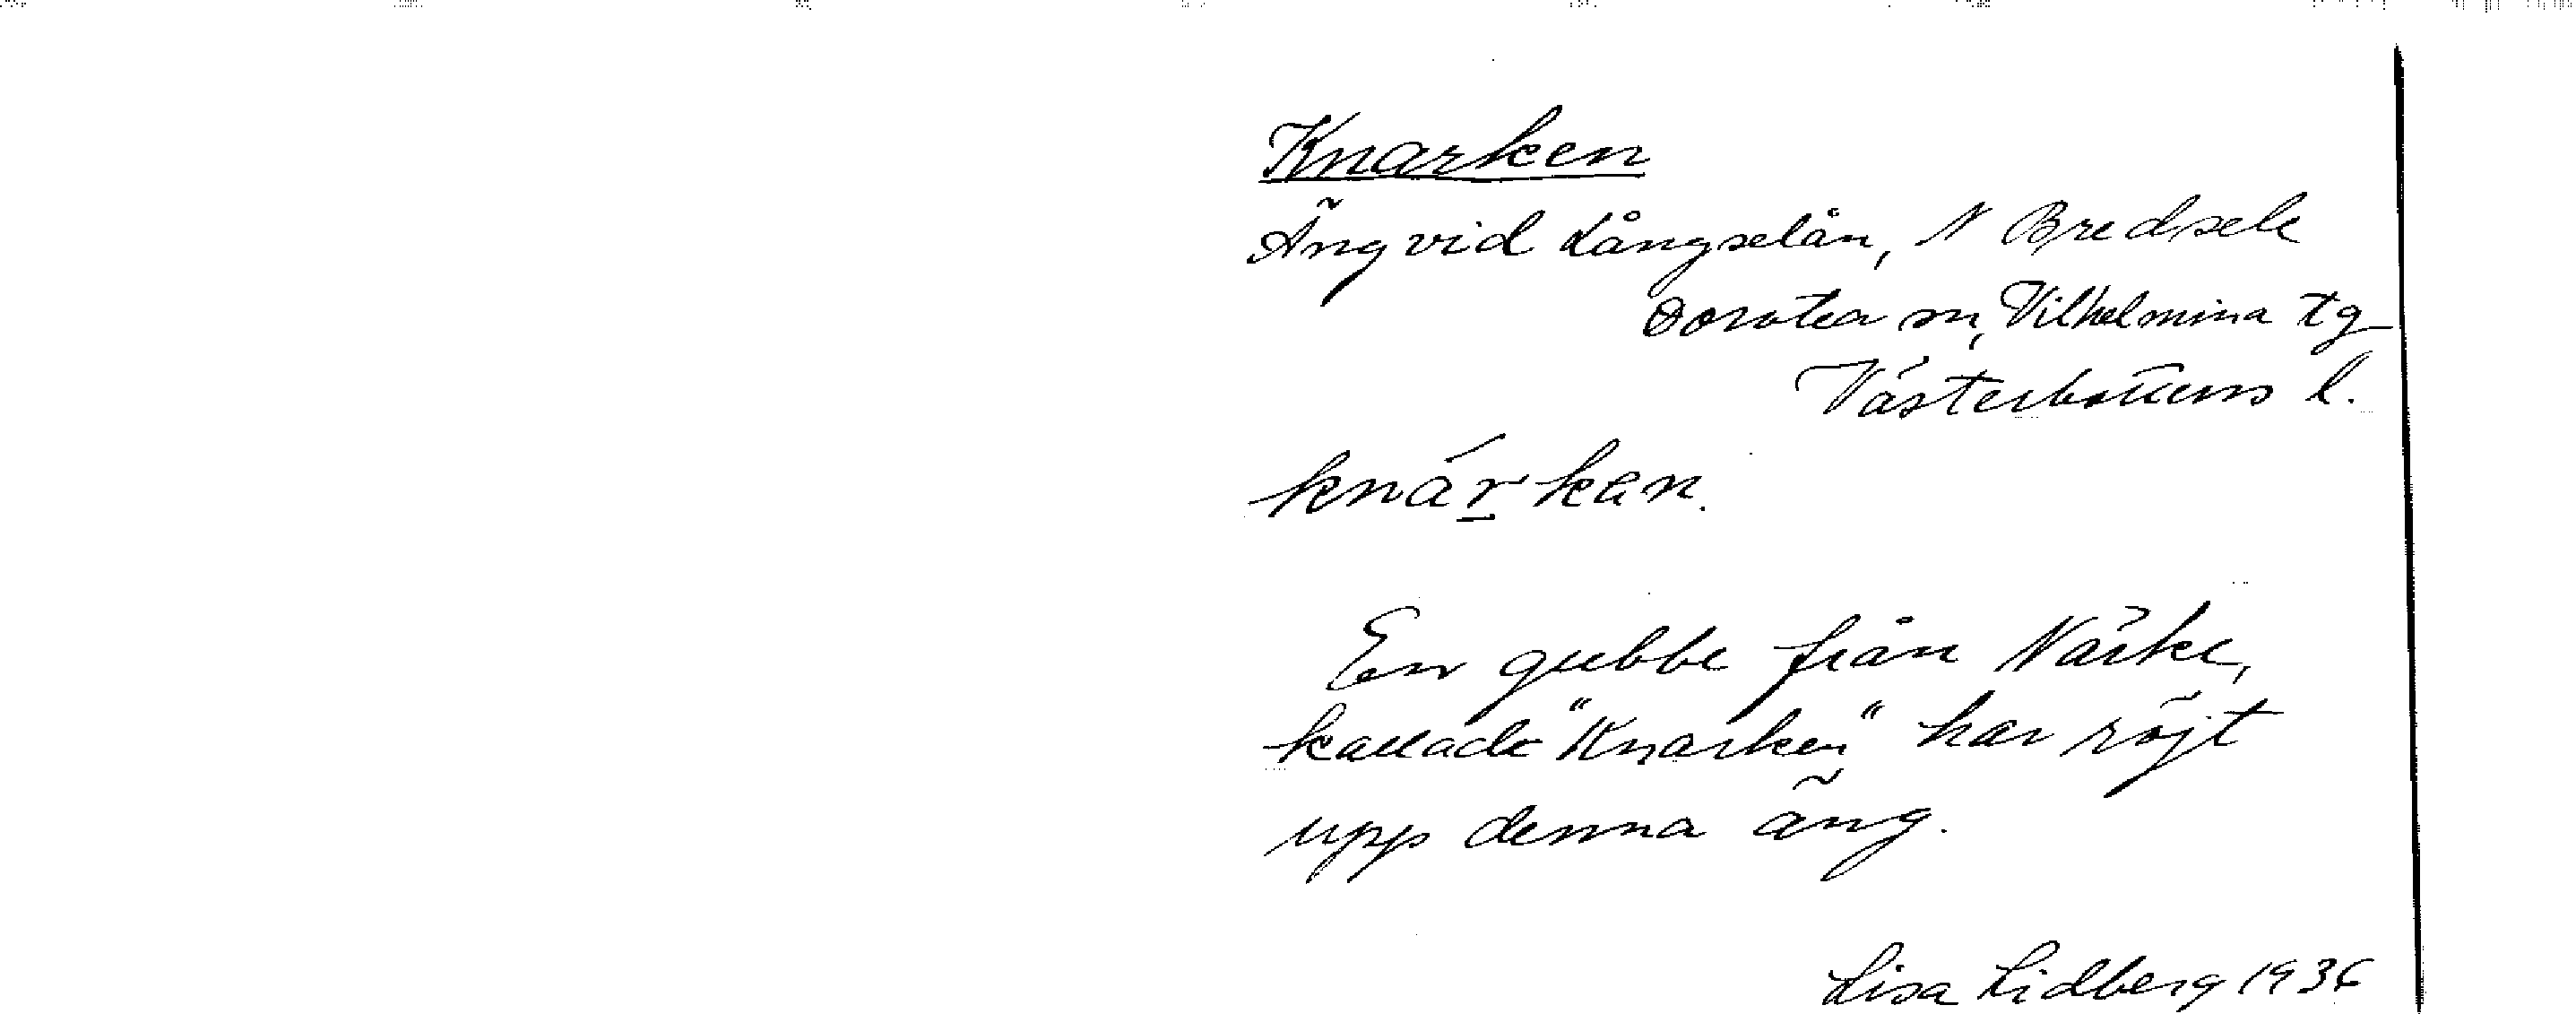 Knarken
Äng vid Långselån, N Bredsele
Dorotea sn, Vilhelmina tg
Västerbottens l.
knárkan.
En gubbe från Närke,
kallade "Knarken" har röjt
upp denna äng.
Lisa Lidberg 1936